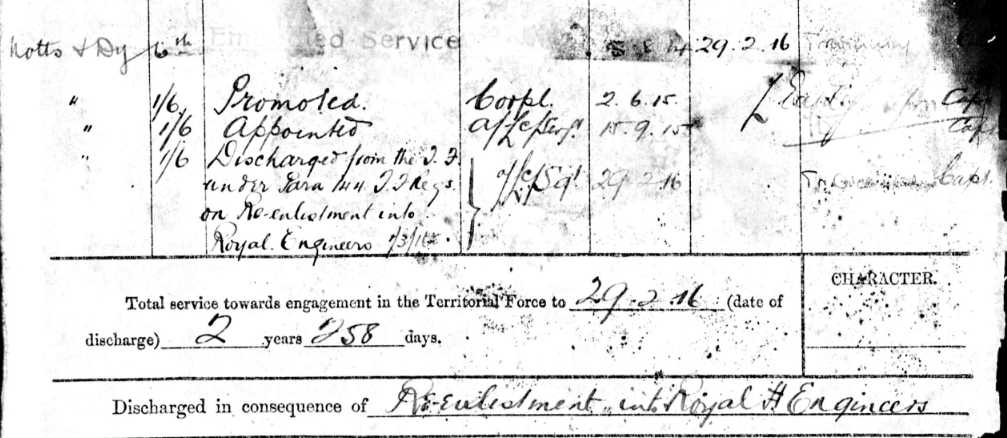 Notts & Dy 6th Embodied Service 29.2.16
" 1/6 Promoted. Corpl. 2.6.15. Capt
" 1/6 Appointed a/L/Sergt 15.9.15 Capt
" 1/6 Discharged from the T.F.
under Para 144 T.F. Regs. 29.2.16 Capt.
on Re-enlistment into
Royal Engineers 1/3/16.
CHARACTER.
Total service towards engagement in the Territorial Force to 29-2-16 (date of
discharge) 2 years 258 days.
Discharged in consequence of Re-enlistment into Royal Engineers